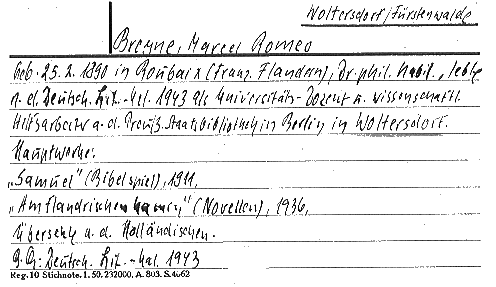 Woltersdorf/Fürstenwalde
Breyne, Marcel Romeo
Geb. 25.2.1890 in Roubaix (Franz. Flandern), Dr. phil. habil., lebte
n. d. Deutsch. Lit.-Kal. 1943 als Universitäts-Dozent u. wissenschaftl.
Hilfsarbeiter a. d. Preuß. Staatsbibliothek in Berlin in Woltersdorf.
Hauptwerke:
„Samuel" (Bibelspiel), 1911,
„Am flandrischen" (Novellen), 1936,
Übersetzte a. d. Holländischen.
Deutsch. Lit.-Kal. 1943
Reg. 10 Stichnote. I. 50. 232000. A. 803. S. 4662